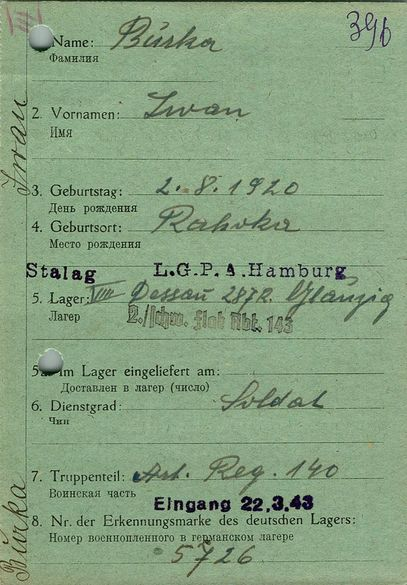 39b
1. Name: Bůrka
Фамилия
2. Vornamen: Iwan
Имя
3. Geburtstag: 2.8.1920
День рождения
4. Geburtsort: Rakovka
Место рождения
Stalag L.G.P.A. Hamburg
5. Lager: VIII Dessau
Лагер
2./schw. Flak Abt. 143
5a. Im Lager eingeliefert am:
Доставлен в лагер (число)
6. Dienstgrad: Soldat
Чин
7. Truppenteil: Art. Reg. 140
Воинская часть
Eingang 22.3.43
8. Nr. der Erkennungsmarke des deutschen Lagers:
Номер военнопленного в германском лагере
5726
Iwan
Bůrka